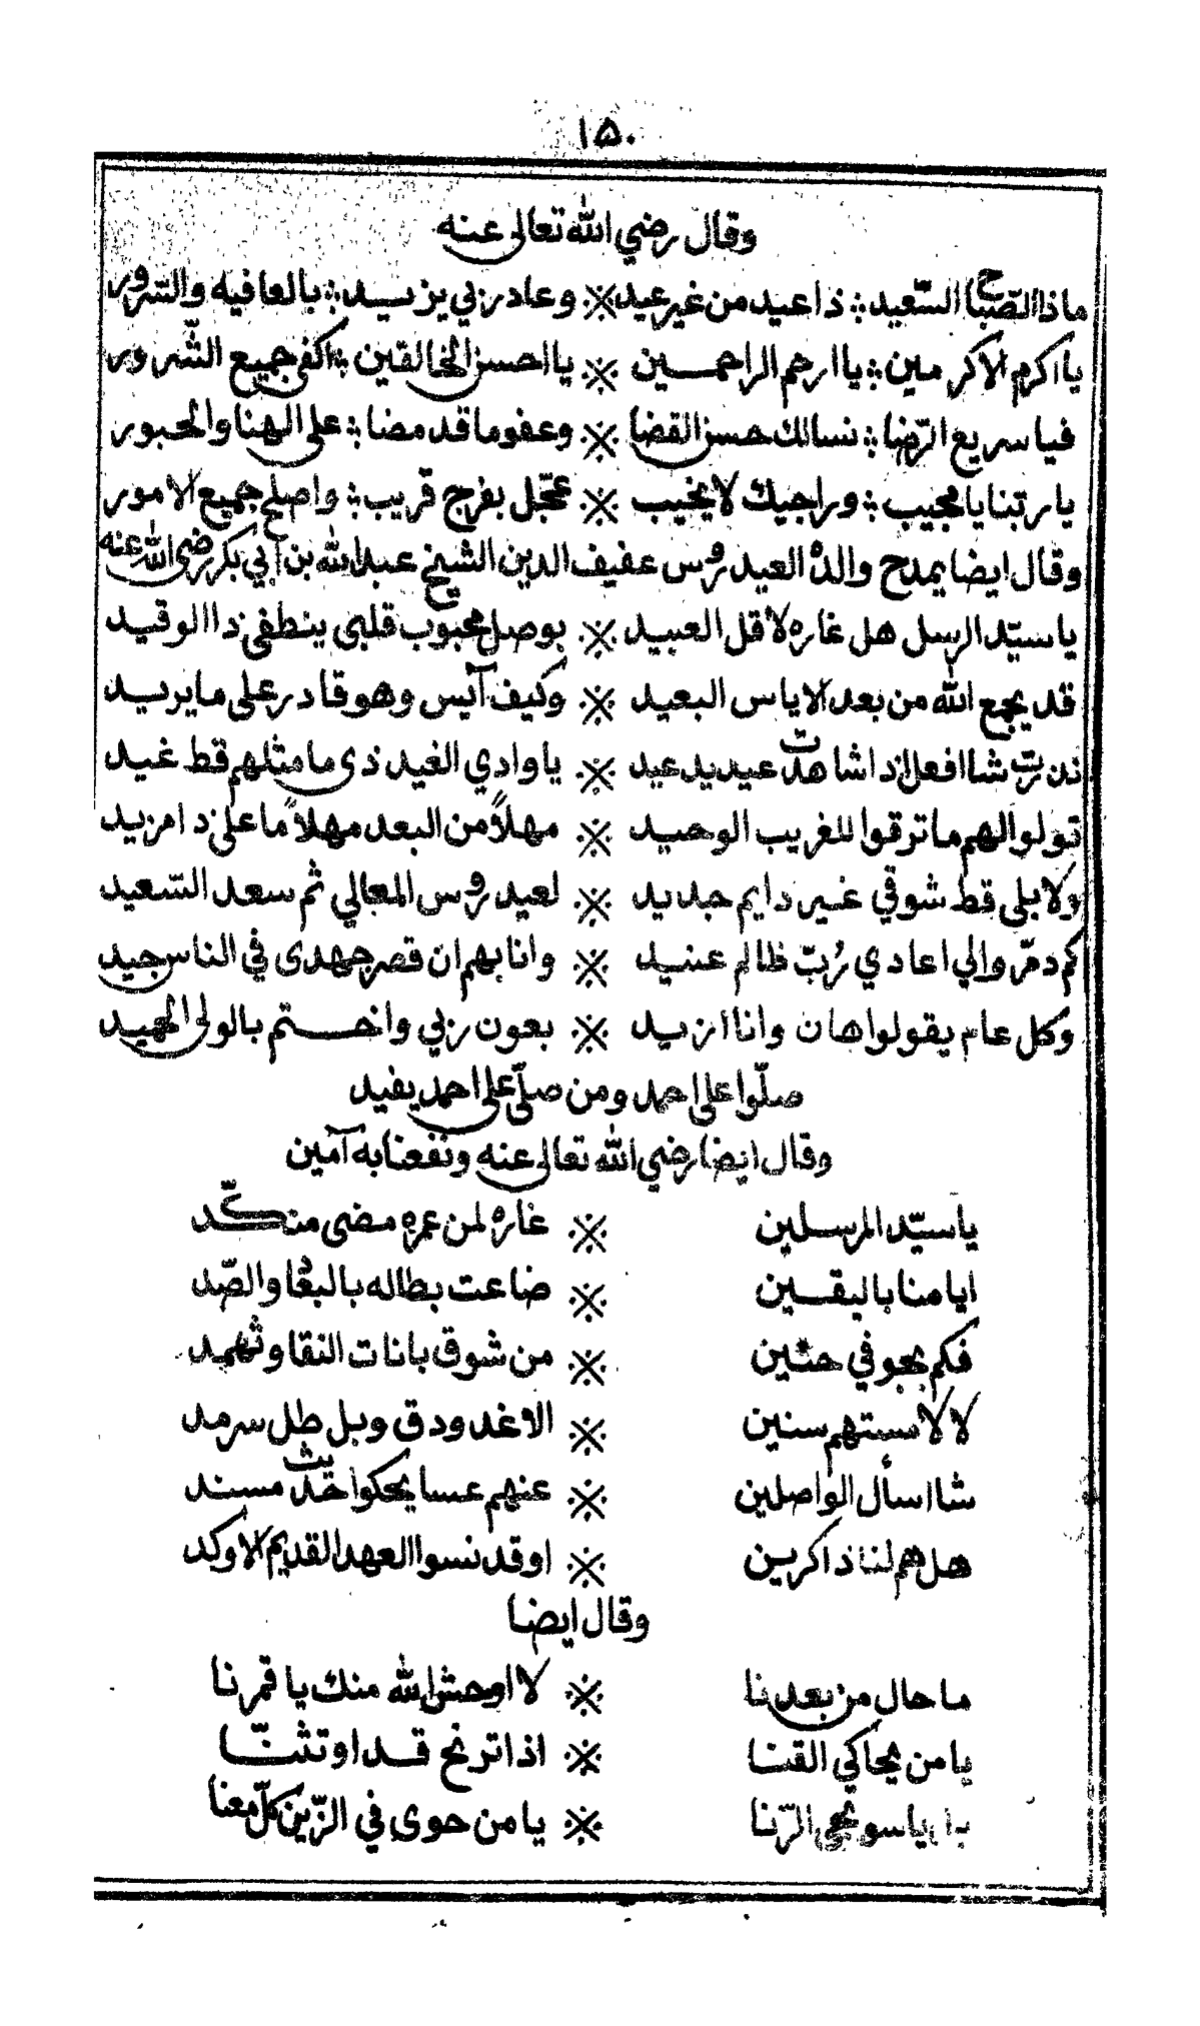 ١٥٠
وقال رضي الله تعالى عنه
ماذا الصّباح السّعيد ؞ ذا عيد من غير عيد ※ وعاد ربي يزيد ؞ بالعافيه والسّرور
يا اكرم الاكرمين ؞ يا ارحم الراحمين ※ يا احسن الخالقين ؞ اكفى جميع الشّرور
فيا سريع الرّضا ؞ نسالك حسن القضا ※ وعفو ما قد مضا ؞ على الهنا والحبور
يا ربّنا يا مجيب ؞ وراجيك لا يخيب ※ عجّل بفرج قريب ؞ واصلح جميع الامور
وقال ايضا يمدح والده العيدروس عفيف الدين الشيخ عبد الله بن أبي بكر رضى الله عنه
يا سيّد الرسل هل غاره لاقل العبيد ※ بوصل محبوب قلبى ينطفى ذا الوقيد
قد يجمع الله من بعد الاياس البعيد ※ وكيف آيس وهو قادر على ما يريد
نذرت شا افعل اذا شاهدت عيديد عيد ※ يا وادي الغيد ذى ما مثلهم قط غيد
تولوا لهم ما ترقوا للغريب الوحيد ※ مهلاً من البعد مهلاً ما على ذا مزيد
ولا بلى قط شوقي غير دايم جديد ※ لعيدروس المعالي ثم سعد السّعيد
كم دمّر والي اعادي رُبّ ظالم عنيد ※ وانا بهم ان قصر جهدى في الناس جيد
وكل عام يقولوا هان وانا ازيد ※ بعون ربي واختم بالولى الحميد
صلّوا على احمد ومن صلّى على احمد يفيد
وقال ايضا رضي الله تعالى عنه ونفعنا به آمين
يا سيّد المرسلين ※ غاره لمن عمره مضى منكّد
ايامنا باليقين ※ ضاعت بطاله بالبعد والصّد
فكم بجوفي حنين ※ من شوق بانات النقا وثهمد
لا لا مستهم سنين ※ الا غدودق وبل طل سرمد
شا اسأل الواصلين ※ عنهم عسا يحكوا حديث مسند
هل هم لنا ذاكرين ※ او قد نسوا العهد القديم الاوكد
وقال ايضا
ما حال من بعدنا ※ لا اوحش الله منك يا قمرنا
يا من يحاكي القنا ※ اذا ترنح قد او تثنّا
يا سوجى الرّنا ※ يا من حوى في الزّين كلّ معنا